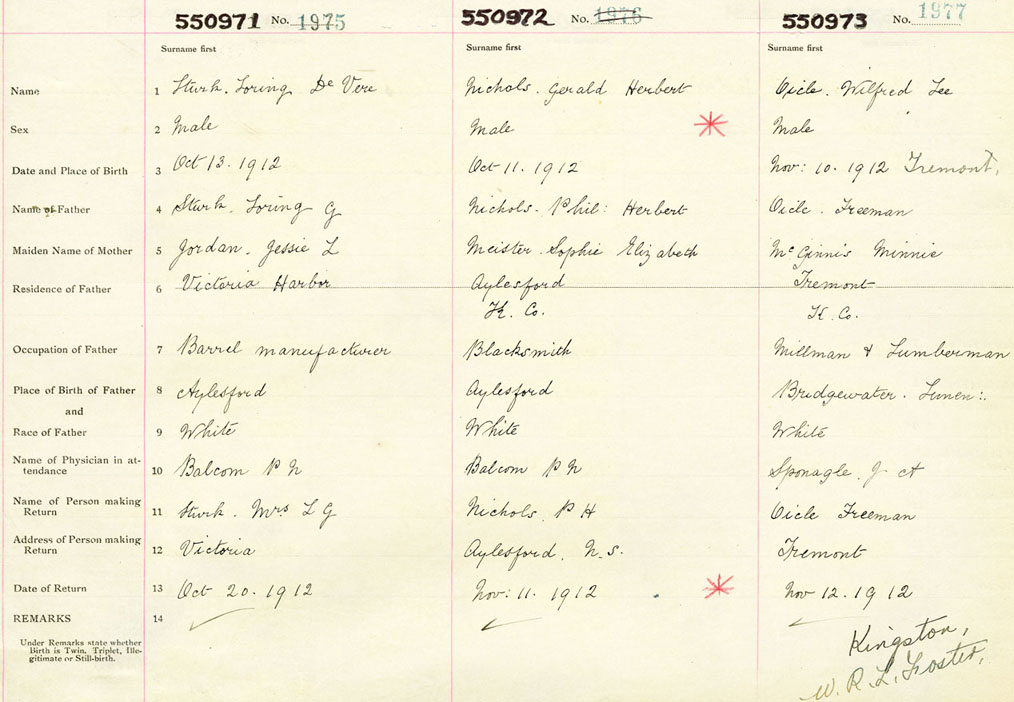 550971 No. 1975 550972 No. 1976 550973 No. 1977
Surname first Surname first Surname first
Name 1 Sturk. Loring De Vere Nichols. Gerald Herbert Oicle. Wilfred Lee
Sex 2 Male Male Male
Date and Place of Birth 3 Oct 13. 1912 Oct 11. 1912 Nov: 10. 1912 Tremont,
Name of Father 4 Sturk. Loring G Nichols. Phil: Herbert Oicle. Freeman
Maiden Name of Mother 5 Jordan. Jessie L Meister. Sophie Elizabeth McGinnis Minnie
Residence of Father 6 Victoria Harbor Aylesford Tremont
K. Co. K. Co.
Occupation of Father 7 Barrel manufacturer Blacksmith Millman & Lumberman
Place of Birth of Father 8 Aylesford Aylesford Bridgewater. Lunen:.
and
Race of Father 9 White White White
Name of Physician in at-
tendance 10 Balcom P N Balcom P N Sponagle. J A
Name of Person making
Return 11 Sturk. Mrs L G Nichols. P H Oicle Freeman
Address of Person making
Return 12 Victoria Aylesford, N.S. Tremont
Date of Return 13 Oct 20. 1912 Nov: 11. 1912 Nov 12. 1912
REMARKS 14
Under Remarks state whether
Birth is Twin, Triplet, Ille-
gitimate or Still-birth.
Kingston,
W. R. L. Foster,